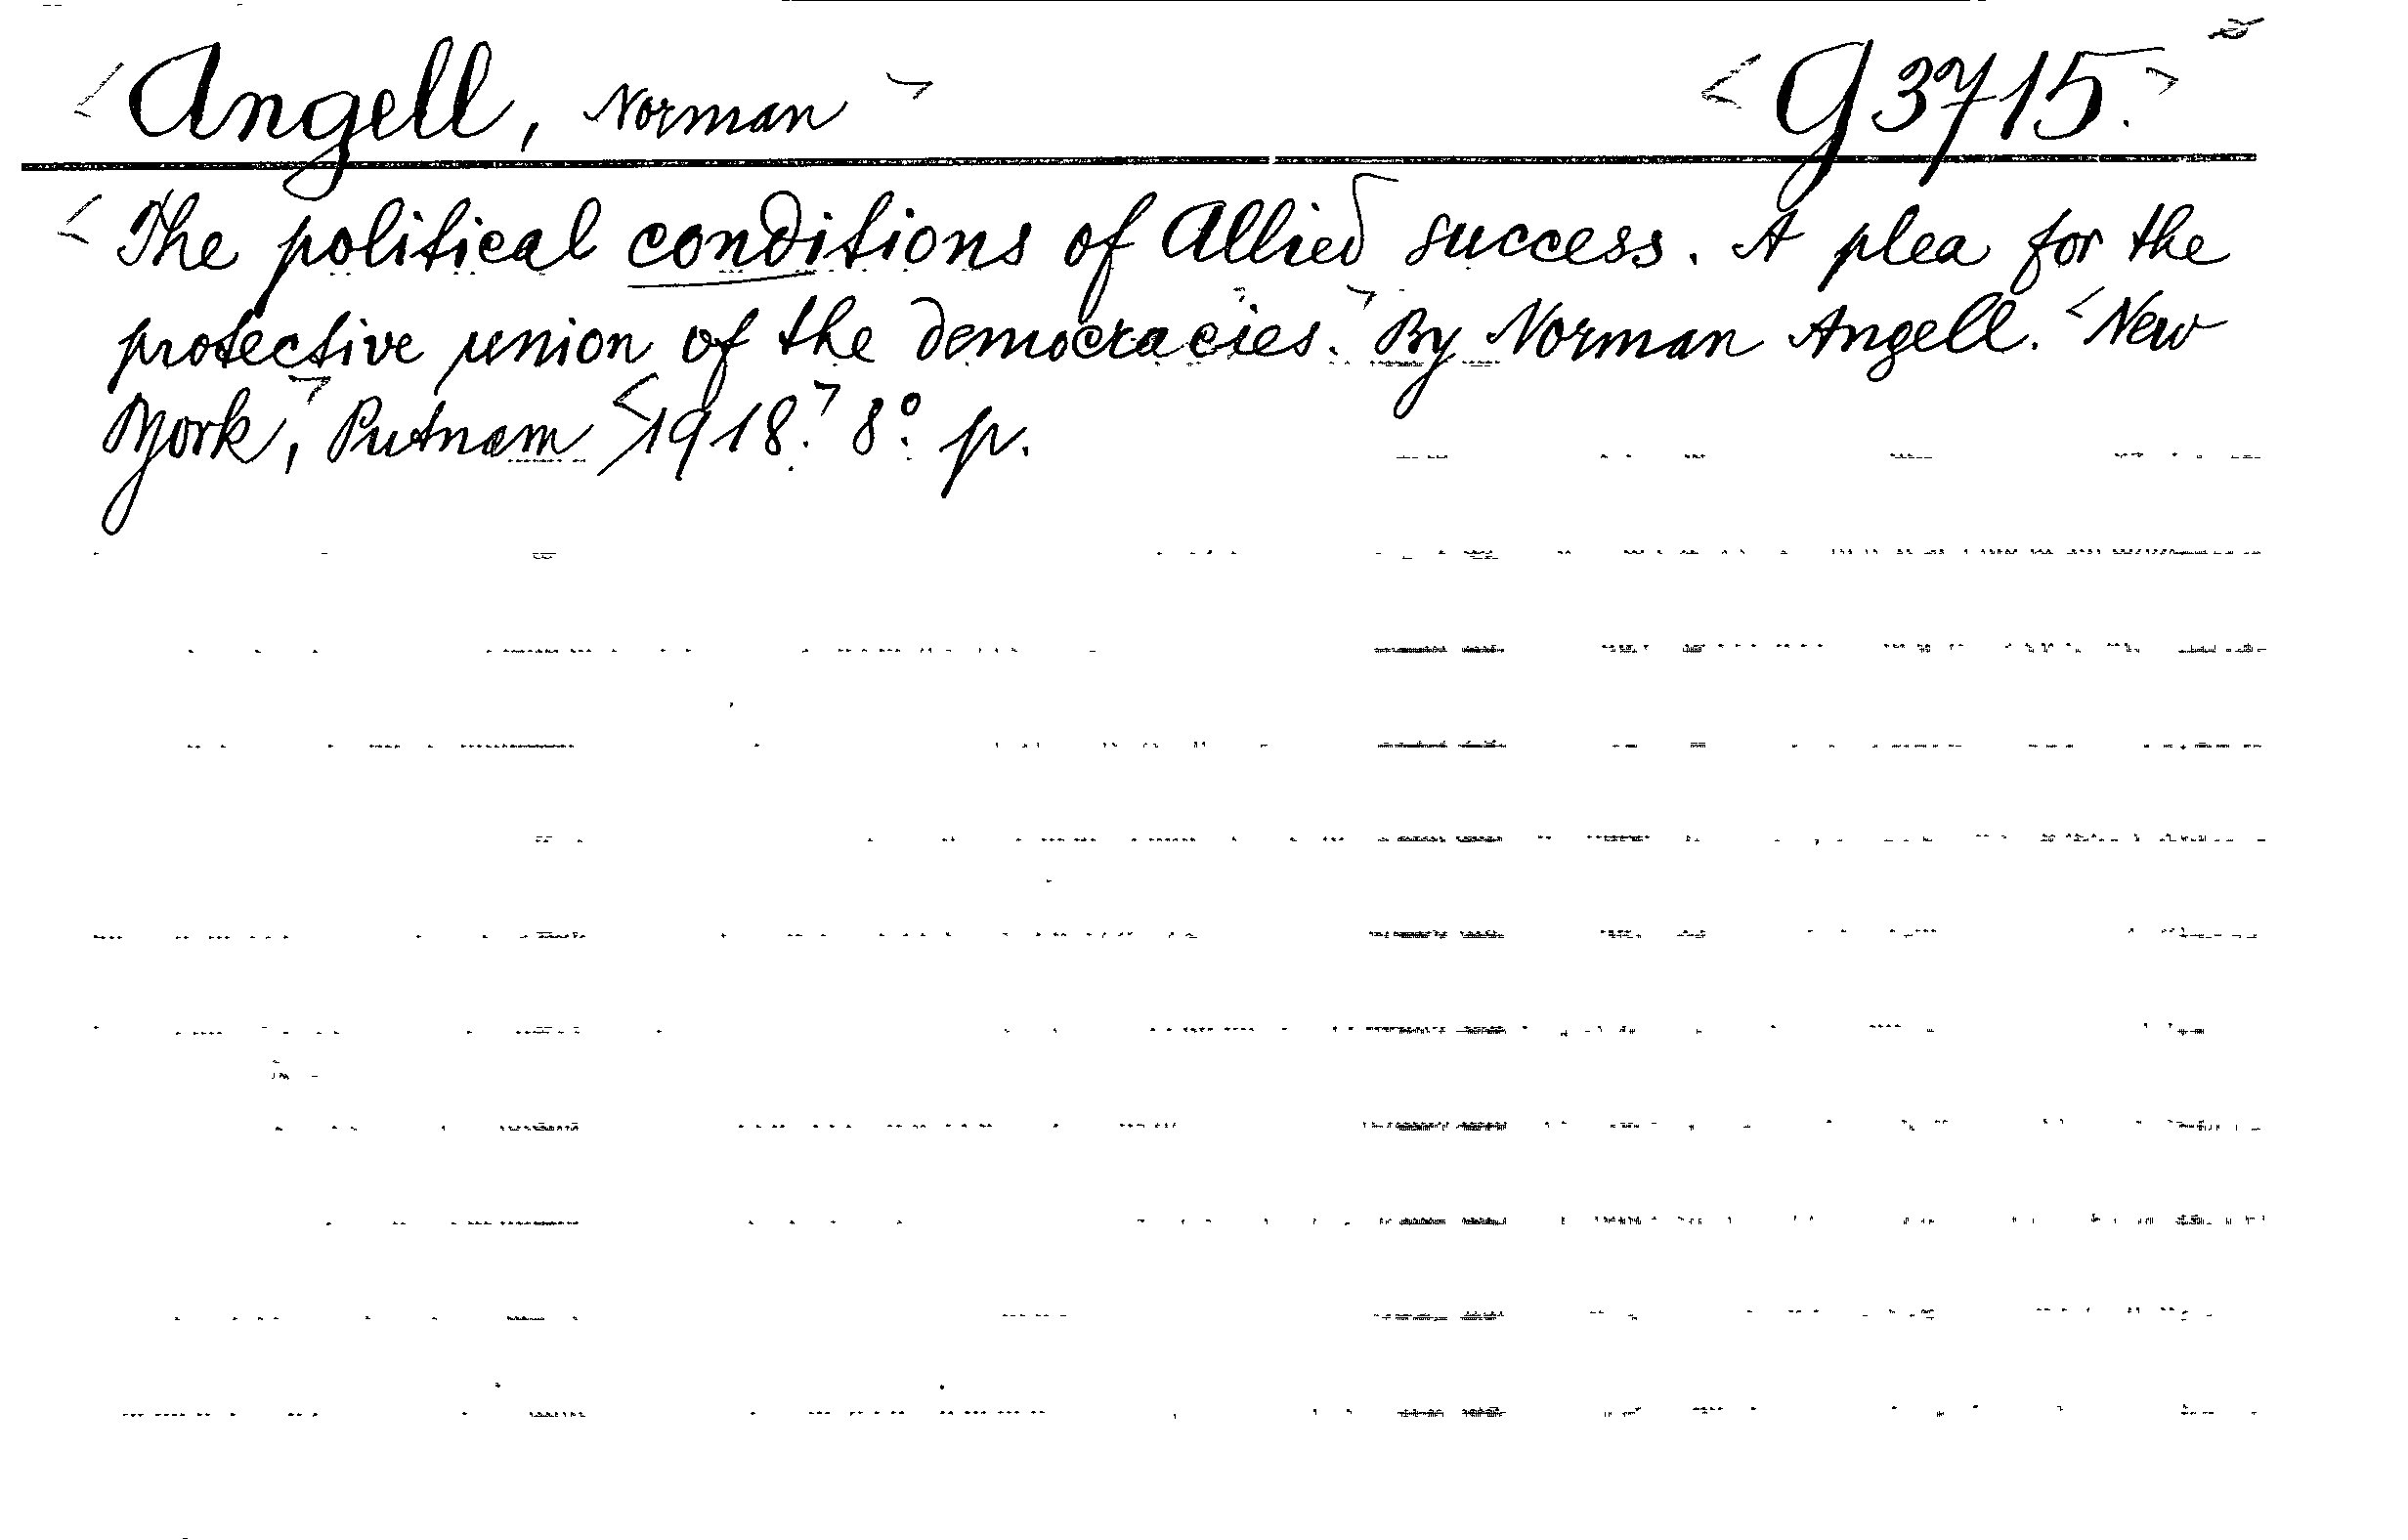 <Angell, Norman> <G3715.>
<The political conditions of Allied success. A plea for the
protective union of the democracies.> By Norman Angell. <New
York,> Putnam <1918.> 8º. p.